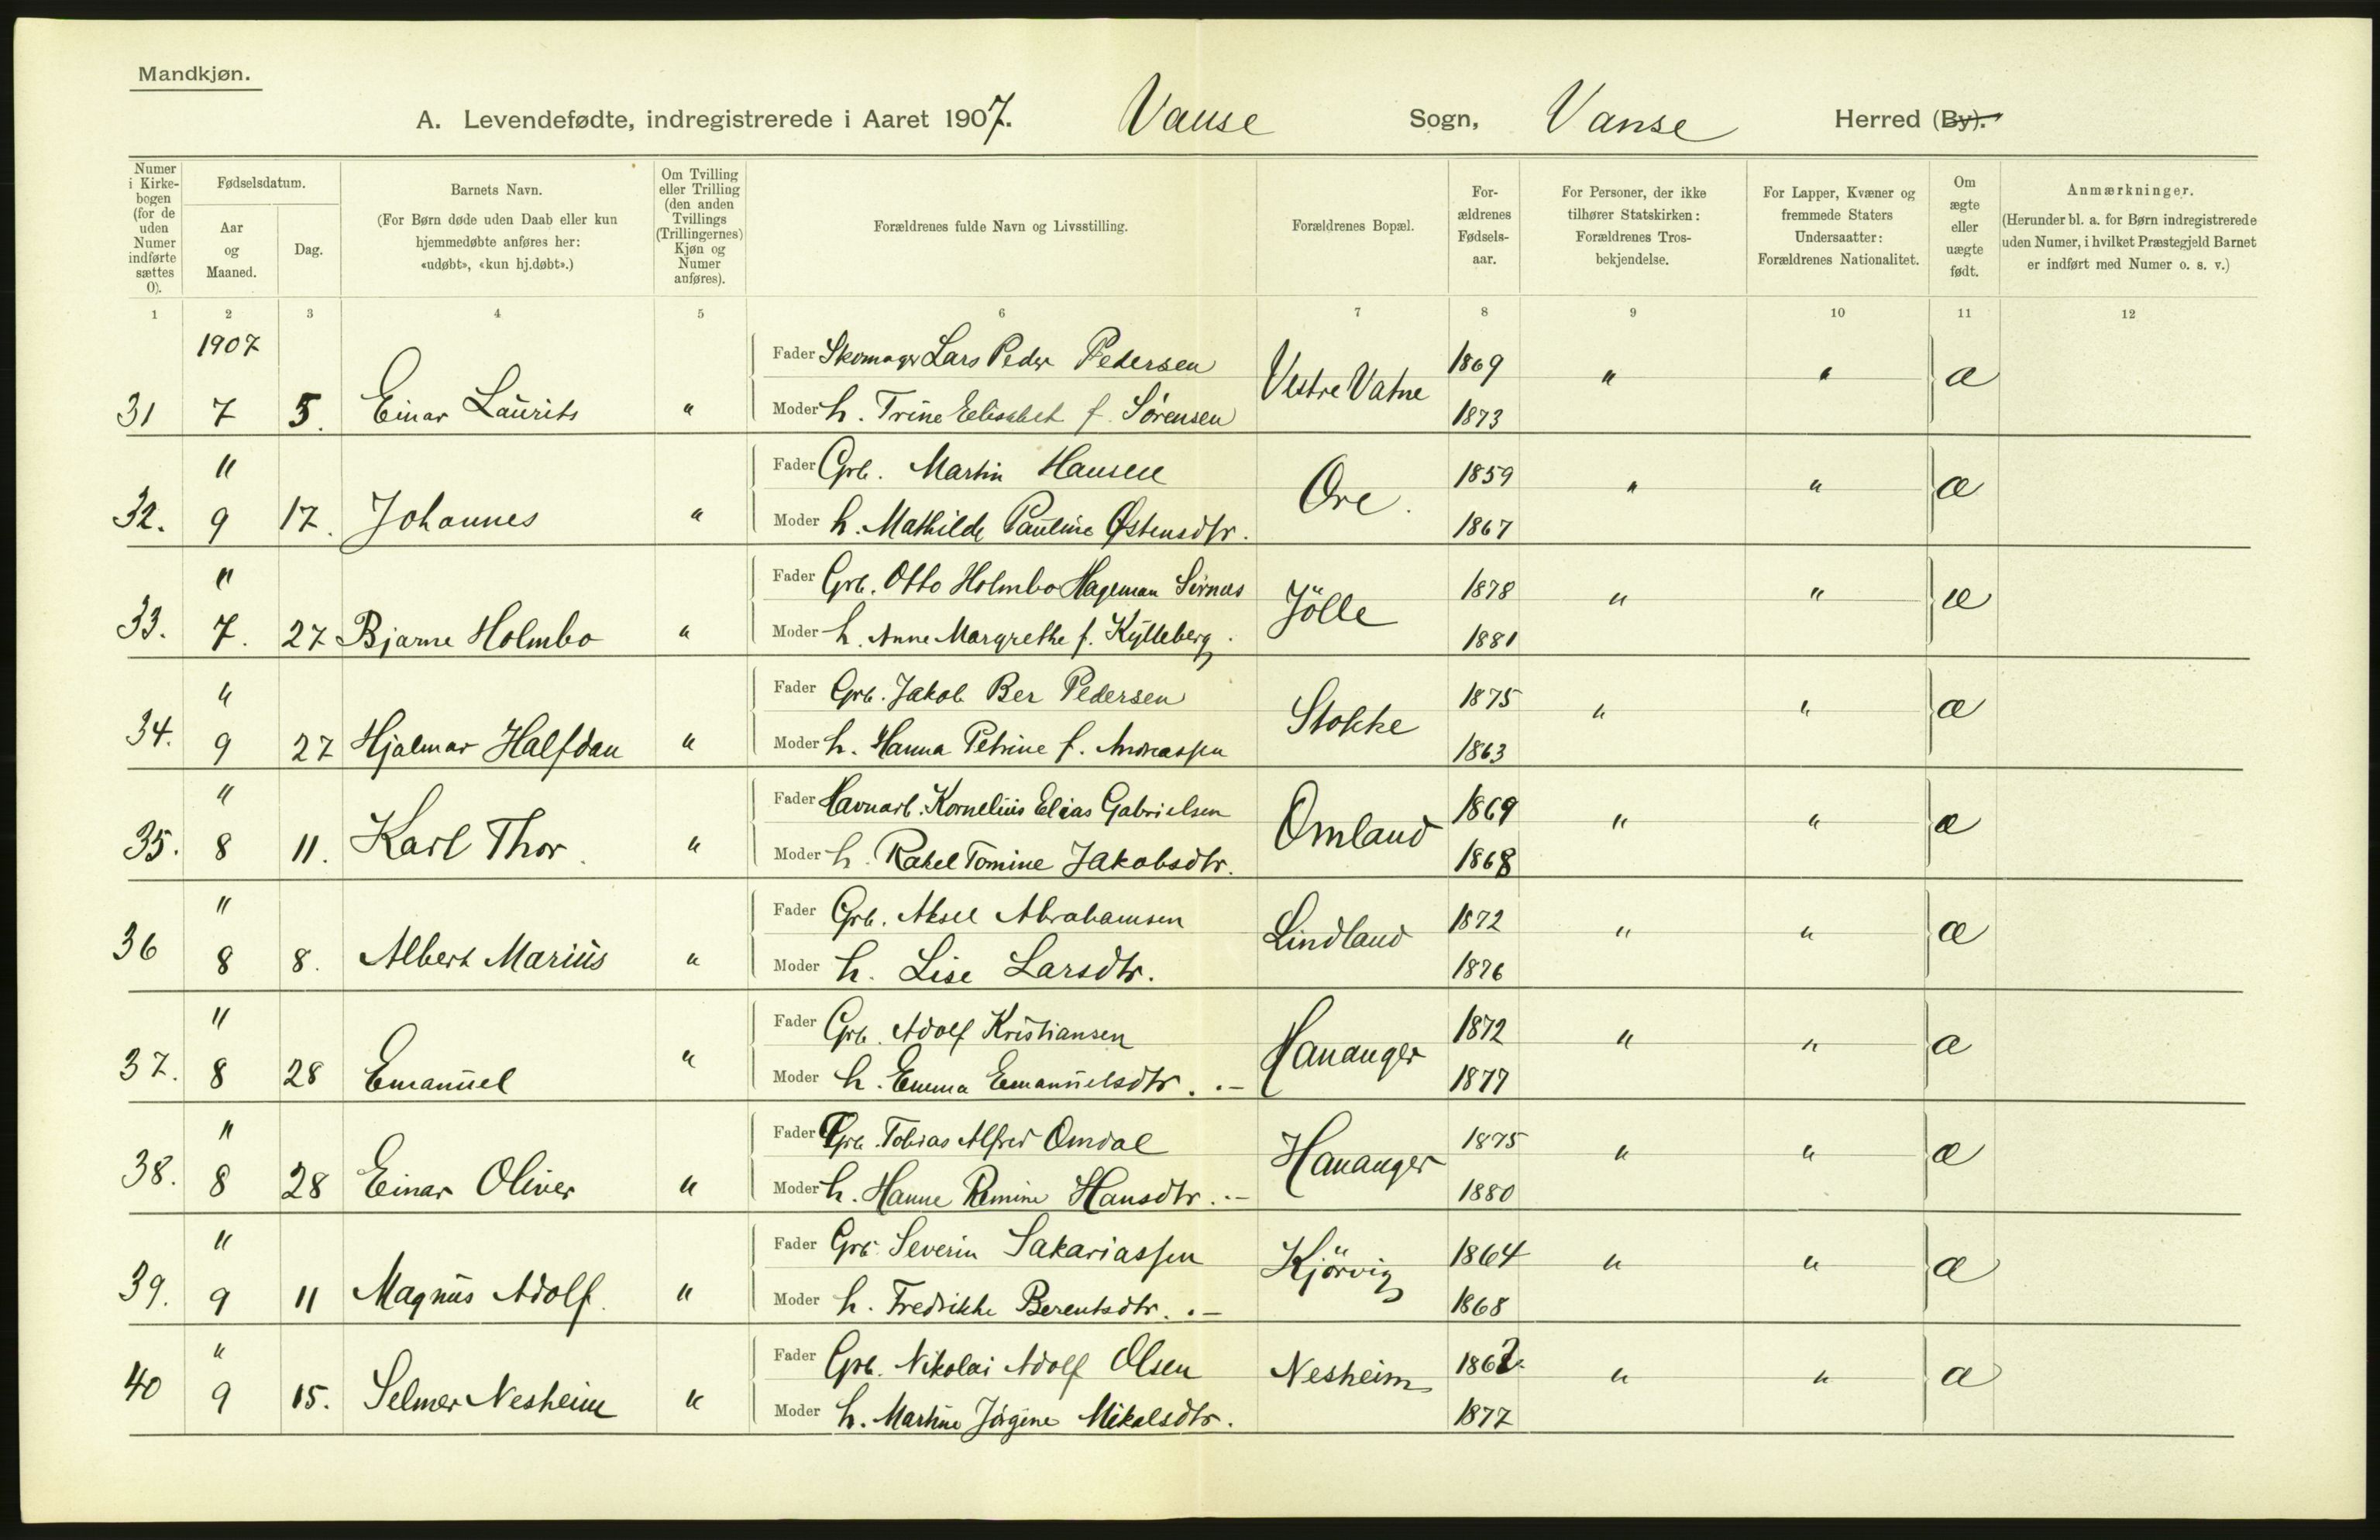 Mandkjøn.
A. Levendefødte, indregistrerede i Aaret 1907. Vanse Sogn, Vanse Herred (By).
Numer i Kirkebogen (for de uden Numer indførte sættes 0).
Fødselsdatum.
Aar og Maaned.
Dag.
Barnets Navn.
(For Børn døde uden Daab eller kun hjemmedøbte anføres her: «udøbt», «kun hj.døbt».)
Om Tvilling eller Trilling (den anden Tvillings (Trillingernes) Kjøn og Numer anføres).
Forældrenes fulde Navn og Livsstilling.
Forældrenes Bopæl.
Forældrenes Fødselsaar.
For Personer, der ikke tilhører Statskirken: Forældrenes Trosbekjendelse.
For Lapper, Kvæner og fremmede Staters Undersaatter: Forældrenes Nationalitet.
Om ægte eller uægte født.
Anmærkninger.
(Herunder bl. a. for Børn indregistrerede uden Numer, i hvilket Præstegjeld Barnet er indført med Numer o. s. v.)
1 2 3 4 5 6 7 8 9 10 11 12
1907 Fader Skomager Lars Peder Pedersen Vestre Vatne 1869 " " æ
31 7 5. Einar Laurits " Moder h. Trine Elisabet f. Sörensen 1873
" Fader Grb. Martin Hansen Ore. 1859 " " æ
32. 9 17. Johannes " Moder h. Mathilde Pauline Østensdtr. 1867
" Fader Grb. Otto Holmbo Hageman Sirnes Jölle 1878 " " æ
33. 7. 27 Bjarne Holmbo " Moder h. Anne Margrethe f. Kylleberg. 1881
" Fader Grb. Jakob Ber Pedersen Stokke 1875 " " æ
34. 9 27 Hjalmar Halfdan " Moder h. Hanna Petrine f. Andreassen 1863
" Fader Havnarb. Kornelius Elias Gabrielsen Omland 1869 " " æ
35. 8 11. Karl Thor. " Moder h. Rakel Tomine Jakobsdtr. 1868
" Fader Grb. Aksel Abrahamsen Lindland 1872 " " æ
36 8 8. Albert Marius " Moder h. Lise Larsdtr. 1876
" Fader Grb. Adolf Kristiansen Hananger 1872 " " æ
37. 8 28 Emanuel " Moder h. Emma Emanuelsdtr. .– 1877
" Fader Grb. Tobias Alfred Omdal Hananger 1875 " " æ
38. 8 28 Einar Oliver " Moder h. Hanne Remine Hansdtr. .– 1880
" Fader Grb. Severin Sakariassen Kjörvig 1864 " " æ
39. 9 11 Magnus Adolf. " Moder h. Fredrikke Berentsdtr. .– 1868
" Fader Grb. Nikolai Adolf Olsen Nesheim 1862. " " æ
40 9 15. Selmer Nesheim " Moder h. Martine Jörgine Mikalsdtr. 1877